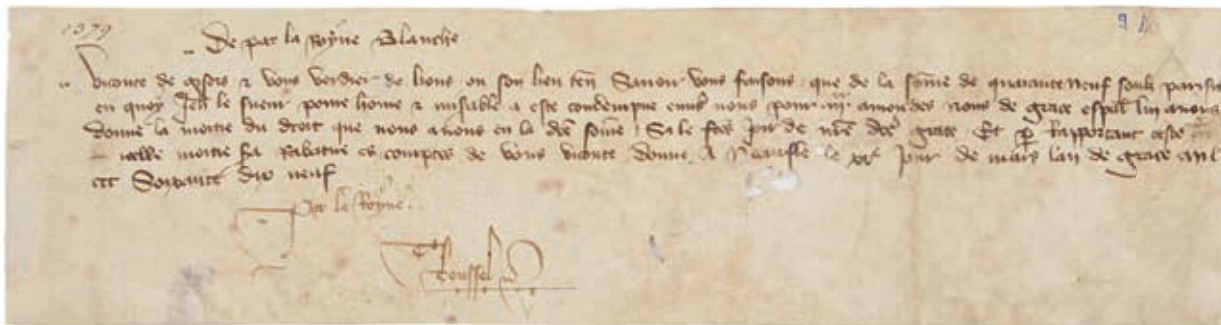 1379
De par la Royne Blanche
Viconte de Gisors & vous verdier de lions ou son lieu ten Savoir vous faisons que de la somme de quarante neuf soulz parisis
en quoy Jeh le sueur povre home & misable a este condempne envs nous pour iiij amendes nous de grace espal lui avons
donne la moitie du droit que nous avons en la dce some Si le ftes joir de nre dce grace Et p Rapportant ceste
icelle moitie sa Rabatue es comptes de vous viconte donne A Neaufle le xxe jour de mars lan de grace mil
ccc soixante dix neuf
Par la Royne
Roussel